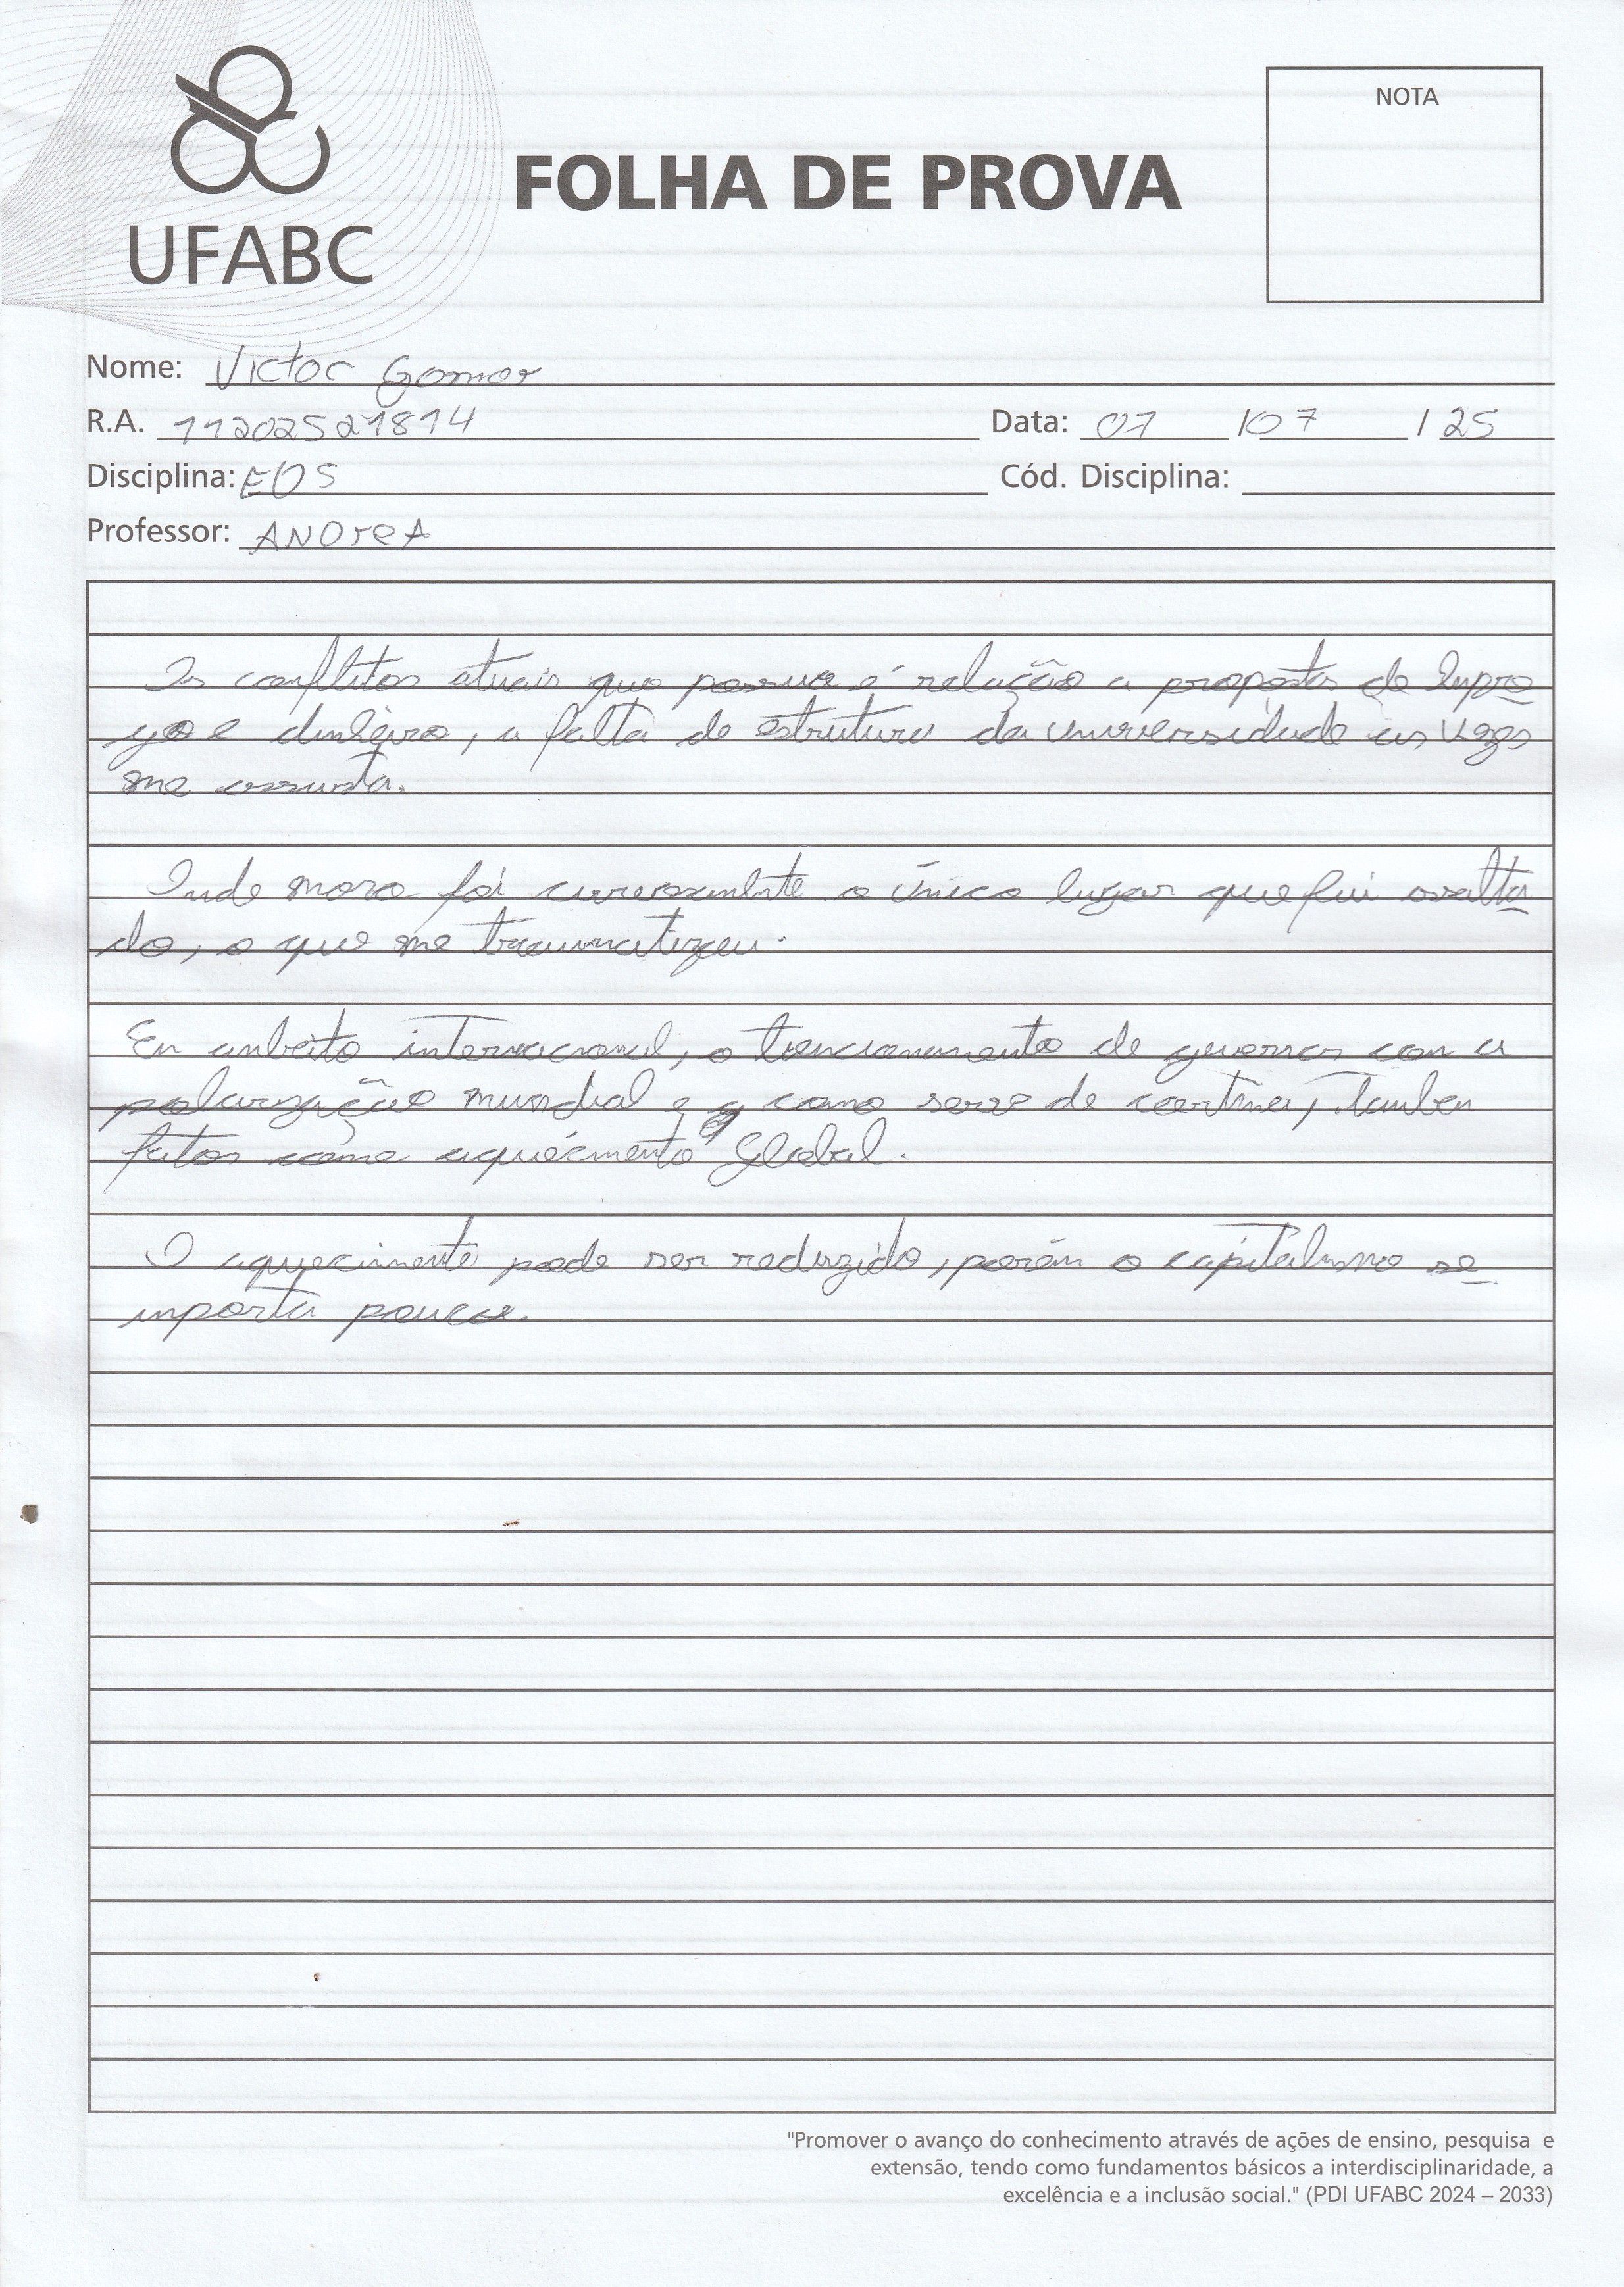 UFABC
FOLHA DE PROVA
NOTA
Nome: Victor Gomor
R.A. 11202521814 Data: 07 / 07 / 25
Disciplina: EDS Cód. Disciplina:
Professor: ANDreA
Os conflitos atuais que possuo é relação a propostas de Empre
go e dinheiro, a falta de estrutura da universidade as vezes
me assusta.
Onde moro foi curiosamente o único lugar que fui assalta
do, o que me traumatizou.
Em ambito internacional, o tencionamento de guerras com a
polarização mundial e como serve de cortina, também
fatos como aquecimento Global.
O aquecimento pode ser reduzido, porém o capitalismo se
importa pouco.
"Promover o avanço do conhecimento através de ações de ensino, pesquisa e
extensão, tendo como fundamentos básicos a interdisciplinaridade, a
excelência e a inclusão social." (PDI UFABC 2024 – 2033)